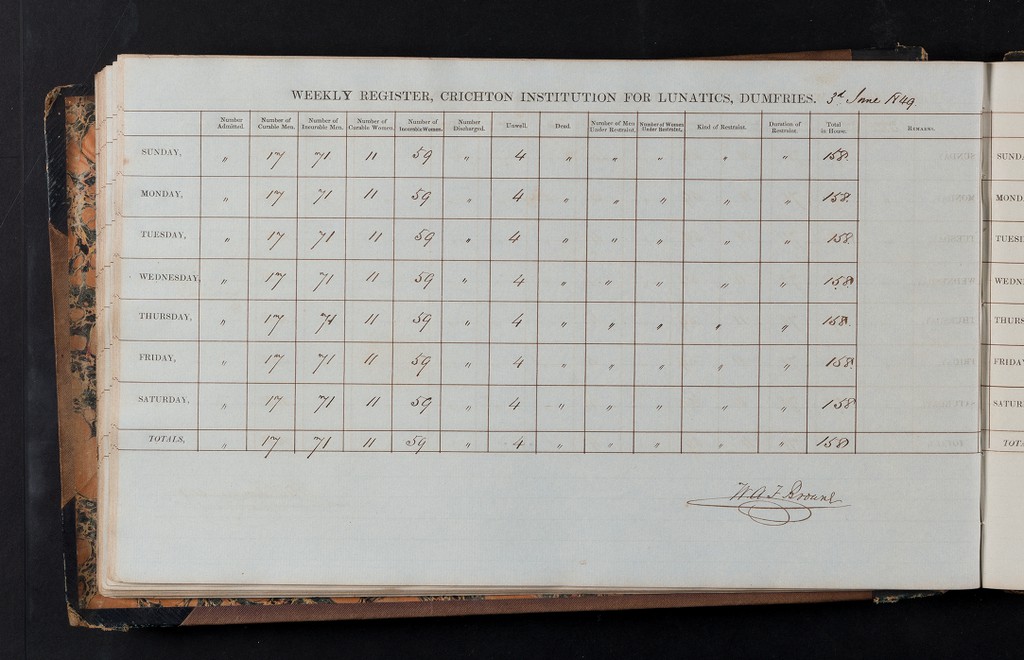 WEEKLY REGISTER, CRICHTON INSTITUTION FOR LUNATICS, DUMFRIES. 3d June 1849.
Number Admitted. Number of Curable Men. Number of Incurable Men. Number of Curable Women. Number of Incurable Women. Number Discharged. Unwell. Dead. Number of Men Under Restraint. Number of Women Under Restraint. Kind of Restraint. Duration of Restraint. Total in House. Remarks.
SUNDAY, " 17 71 11 59 " 4 " " " " " 158. SUND
MONDAY, " 17 71 11 59 " 4 " " " " " 158. MOND
TUESDAY, " 17 71 11 59 " 4 " " " " " 158. TUESI
WEDNESDAY, " 17 71 11 59 " 4 " " " " " 158. WEDNI
THURSDAY, " 17 71 11 59 " 4 " " " " " 158. THURS
FRIDAY, " 17 71 11 59 " 4 " " " " " 158. FRIDAY
SATURDAY, " 17 71 11 59 " 4 " " " " " 158 SATUR
TOTALS, " 17 71 11 59 " 4 " " " " " 158 TOTA
W A F Browne